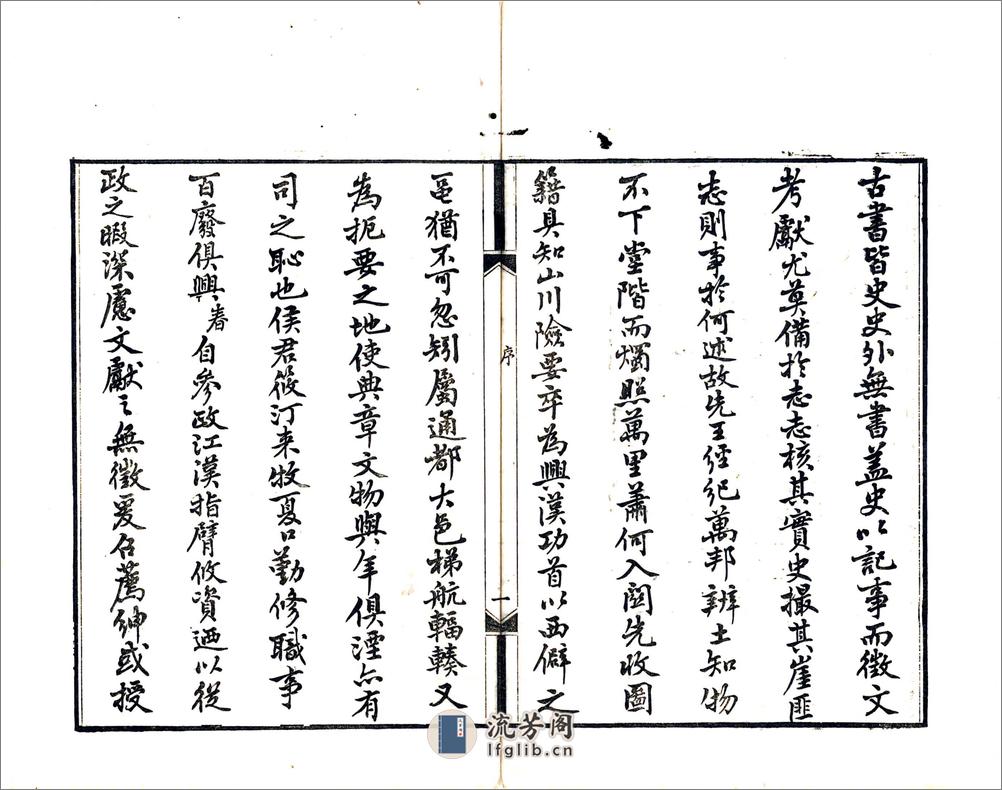 古書皆史史外無書蓋史以記事而徵文
考獻尤莫備於志志核其實史撮其崖匪
志則事於何述故先王經紀萬邦辨土知物
不下堂階而燭照萬里蕭何入關先收圖
籍具知山川險要卒為興漢功首以西僻之
序
一
黽猶不可忽矧屬通都大邑梯航輻輳又
為扼要之地使典章文物與年俱湮亦有
司之恥也侯君筱汀来牧夏口勤修職事
百廢俱興春自參政江漢指臂攸資迺以從
政之暇深慮文獻之無徵爰召薦紳或授
流芳阁
lfglib.cn